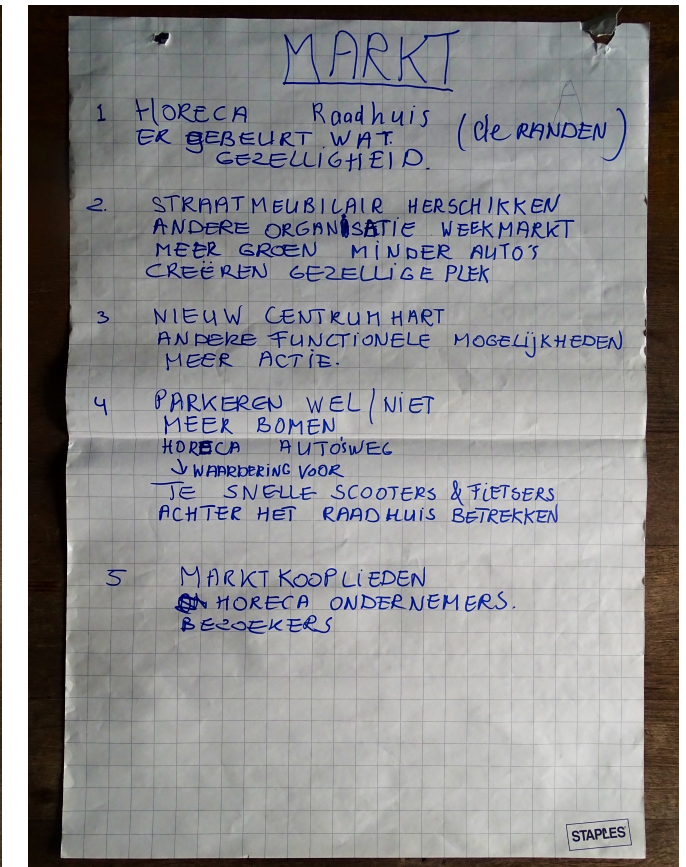 MARKT
A
1 HORECA Raadhuis (de RANDEN)
ER GEBEURT WAT
GEZELLIGHEID.
2. STRAATMEUBILAIR HERSCHIKKEN
ANDERE ORGANISATIE WEEKMARKT
MEER GROEN MINDER AUTO'S
CREËREN GEZELLIGE PLEK
3 NIEUW CENTRUM HART
ANDERE FUNCTIONELE MOGELIJKHEDEN
MEER ACTIE.
4 PARKEREN WEL/NIET
MEER BOMEN
HORECA AUTO'S WEG
↓ WAARDERING VOOR
TE SNELLE SCOOTERS & FIETSERS
ACHTER HET RAADHUIS BETREKKEN
5 MARKTKOOPLIEDEN
HORECA ONDERNEMERS.
BEZOEKERS
STAPLES